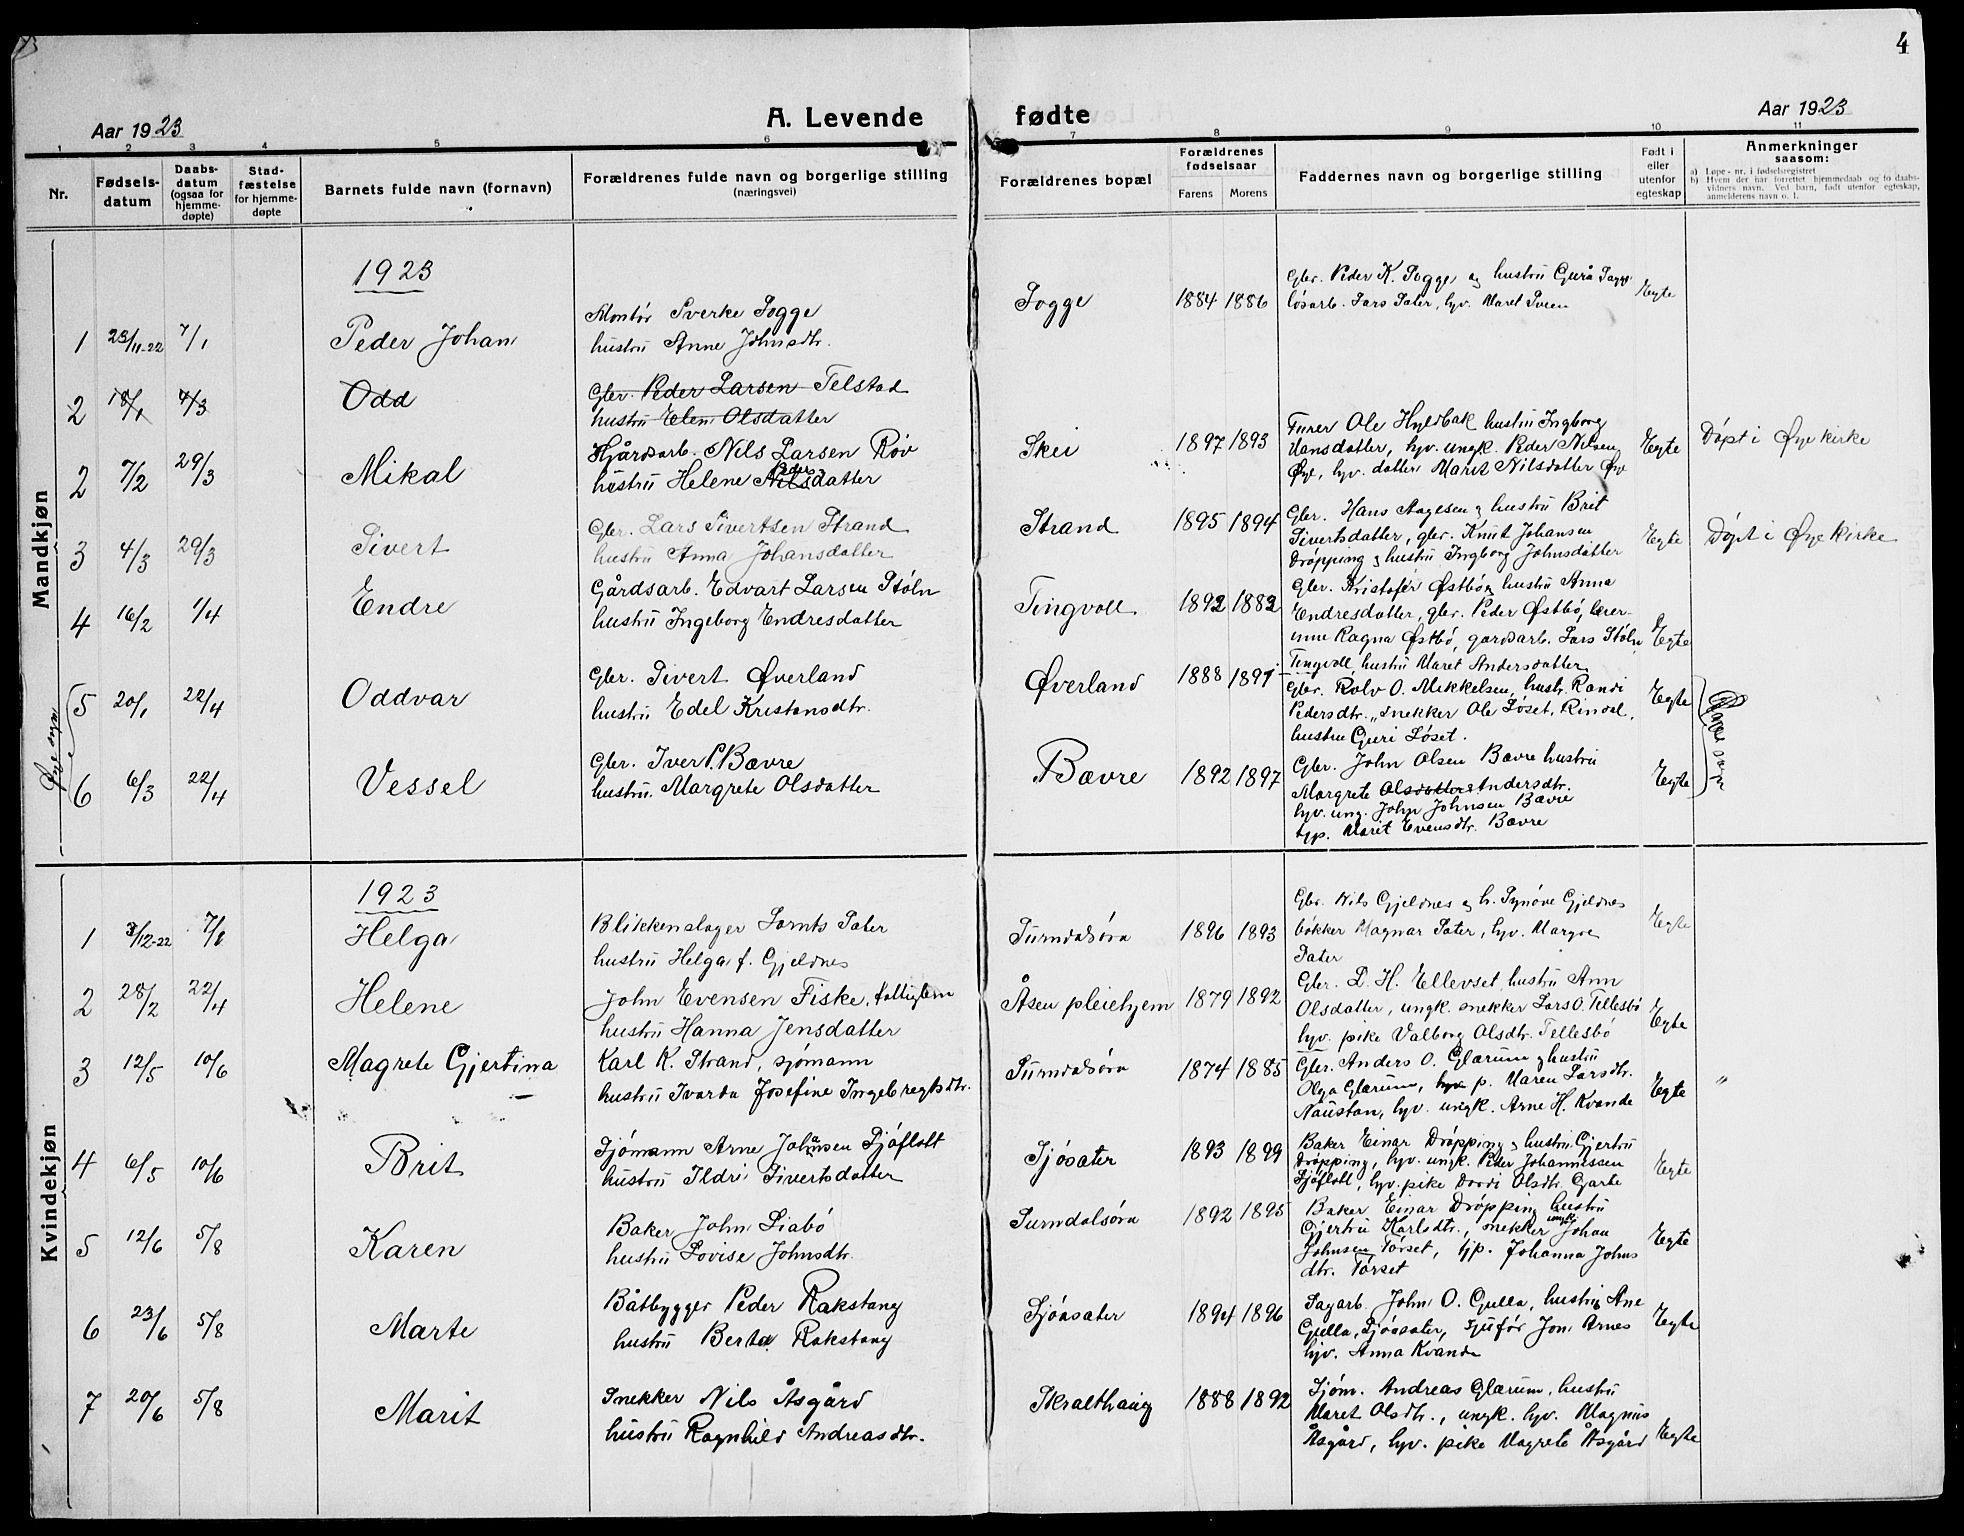 4
Aar 1923
A. Levende
fødte
Aar 1923
1 2 3 4 5 6 7 8 9 10 11
Nr.
Fødsels-
datum
Daabs-
datum
(ogsaa for
hjemme-
døpte)
Stad-
fæstelse
for hjemme-
døpte
Barnets fulde navn (fornavn)
Forældrenes fulde navn og borgerlige stilling
(næringsvei)
Forældrenes bopæl
Forældrenes
fødselsaar
Farens Morens
Faddernes navn og borgerlige stilling
Født i
eller
utenfor
egteskap
Anmerkninger
saasom:
a) Løpe-nr. i fødselsregistret
b) Hvem der har forrettet hjemmedaab og to daabs-
vidners navn. Ved barn, født utenfor egteskap,
anmelderens navn o. l.
Mandkjøn
1923
1 23/11-22 7/1 Peder Johan
Montør Sverke Sogge
hustru Anne Johnsdtr.
Sogge 1884 1886
Gbr. Peder K. Sogge og hustru Gurå Sogge
løsarb. Lars Sater, hv. Maret Sveen
Egte
2 18/1 4/3 Odd
Gbr. Peder Larsen Telstad
hustru Elen Olsdatter
2 7/2 29/3 Mikal
Hjårdsarb. Nils Larsen Røv
hustru Helene Nilsdatter
Skei 1897 1893
Furer Ole Hyldbak hustru Ingborg
Hansdatter, hv. ungk. Peder Nilsen
Øye, hv. datter Marit Nilsdatter Øye
Egte
Døpt i Øye kirke
3 4/3 29/3 Sivert
Gbr. Lars Sivertsen Strand
hustru Anna Johansdatter
Strand 1895 1894
Gbr. Hans Aagesen og hustru Brit
Sivertsdatter, gbr. Knut Johansen
Drøpping og hustru Ingborg Johnsdatter
Egte
Døpt i Øye kirke
4 16/2 1/4 Endre
Gårdsarb. Edvart Larsen Støln
hustru Ingeborg Endresdatter
Tingvoll 1892 1882
Gbr. Kristofer Østbø, hustru Anna
Endresdatter, gbr. Peder Østbø, lærer-
inne Ragna Østbø, gardsarb. Lars Støln
Tingvoll, hustru Maret Andersdatter
Egte
Øye sogn
5 20/1 22/4 Oddvar
Gbr. Sivert Øverland
hustru Edel Kristansdtr.
Øverland 1888 1891
Gbr. Rolv O. Mikkelsen, hustr. Randi
Pedersdtr., snekker Ole Løset, Rindal,
hustru Guri Løset.
Egte
6 6/3 22/4 Vessel
Gbr. Iver P. Bævre
hustru. Margrete Olsdatter
Bævre 1892 1897
Gbr. John Olsen Bævre hustru
Margrete Olsdatter Andersdtr.
hv. ung. John Johnsen Bævre
tjp. Marit Evensdtr. Bævre
Egte
Kvindekjøn
1923
1 3/12-22 7/1 Helga
Blikkenslager Lornts Sater
hustru Helga f. Gjeldnes
Surndalsøra 1896 1893
Gbr. Nils Gjeldnes og h. Synøve Gjeldnes
bøkker Magnar Sater, hv. Margre
Sater
Egte
2 28/2 22/4 Helene
John Evensen Fiske, fattiglem
hustru Hanna Jensdatter
Åsen pleiehjem 1879 1892
Gbr. L. H. Ellevset, hustru Ann
Olsdatter, ungk. snekker Lars O. Tellesbø
hv. pike Valborg Olsdtr. Tellesbø
Egte
3 12/5 10/6 Magrete Gjertina
Karl K. Strand, sjømann
hustru Ivarda Josefine Ingebregtsdtr.
Surndalsøra 1874 1885
Gbr. Anders O. Glærum og hustru
Olga Glærum, hv. p. Maren Larsdtr.
Naustan, hv. ungk. Arne H. Kvande
Egte
"
4 6/5 10/6 Brit
Sjømann Arne Johansen Sjøflott
hustru Ildri Sivertsdatter
Sjøsæter 1893 1899
Baker Einar Drøpping og hustru Gjertru
Drøpping, hv. ungk. Peder Johannessen
Sjøflott, hv. pike Dordi Olsdtr. Garte
Egte
5 12/6 5/8 Karen
Baker John Liabø
hustru Lovise Johnsdtr.
Surndalsøra 1892 1895
Baker Einar Drøpping hustru
Gjertru Karlsdtr., snekker ungk. Johan
Johnsen Tørset, tjp. Johanna Johns
dtr. Tørset
Egte
6 23/6 5/8 Marte
Båtbygger Peder Rakstang
hustru Berta Rakstang
Sjøsæter 1894 1896
Sagarb. John O. Gulla, hustru Ane
Gulla, Sjøsæter, sjufør Jon Arnes
hv. Anna Kvande
Egte
7 20/6 5/8 Marit
Snekker Nils Åsgård
hustru Ragnhild Andreasdtr.
Skralthaug 1888 1892
Sjøm. Andreas Glærum, hustru
Maret Olsdtr., ungk. hv. Magnus
Åsgård, hv. pike Magrete Åsgård
Egte